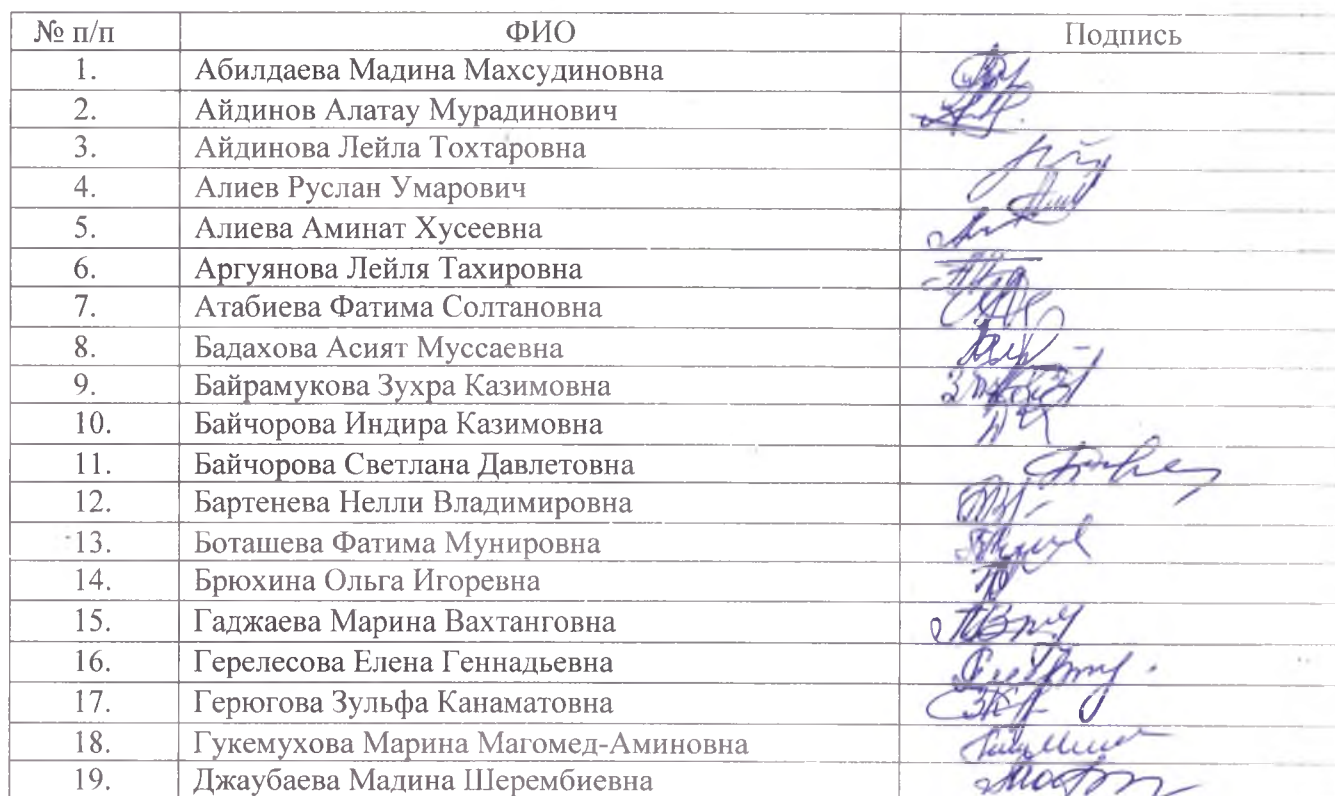 № п/п ФИО Подпись
1. Абилдаева Мадина Махсудиновна
2. Айдинов Алатау Мурадинович
3. Айдинова Лейла Тохтаровна
4. Алиев Руслан Умарович
5. Алиева Аминат Хусеевна
6. Аргуянова Лейля Тахировна
7. Атабиева Фатима Солтановна
8. Бадахова Асият Муссаевна
9. Байрамукова Зухра Казимовна
10. Байчорова Индира Казимовна
11. Байчорова Светлана Давлетовна
12. Бартенева Нелли Владимировна
13. Боташева Фатима Мунировна
14. Брюхина Ольга Игоревна
15. Гаджаева Марина Вахтанговна
16. Герелесова Елена Геннадьевна
17. Герюгова Зульфа Канаматовна
18. Гукемухова Марина Магомед-Аминовна
19. Джаубаева Мадина Шерембиевна